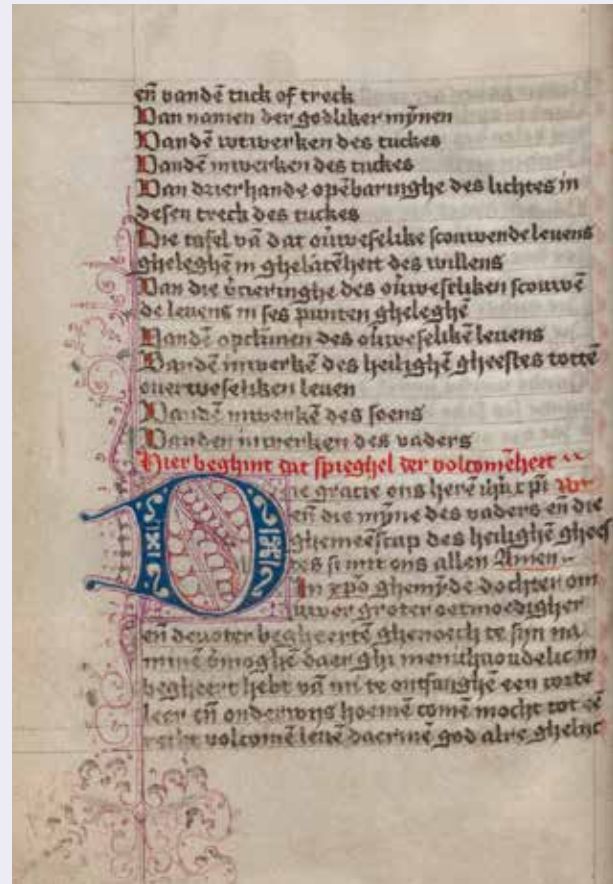 en̄ vandē tuck of treck
Van namen der godliker mȳnen
Vandē wtwerken des tuckes
Vandē inwerken des tuckes
Van drierhande opēbaringhe des lichtes in
desen treck des tuckes
Die tafel vā dat ou̅weselike scouwende leuens
gheleghē in ghelatēheit des willens
Van die v̄cieringhe des ou̅weseliken scouwē
de leuens in ses punten gheleghē
Vandē opclīmen des ou̅weselikē leuens
Vandē inwerkē des heilighē gheestes tottē
ouerweseliken leuen
Vandē inwerkē des soens
Vanden inwerken des vaders
Hier beghint dat spieghel der volcomēheit
Die gracie ons herē ihū xp̄i
en̄ die mȳne des vaders en̄ die
ghemeēscap des heilighē ghees
tes si mit ons allen Amen
In xp̄o ghemȳde dochter om
uwer groter oetmoedigher
en̄ deuoter begheertē ghenoech te sijn na
minē v̄moghē daer ghi menichuoudelic in
begheert hebt vā mi te ontfanghē een corte
leer en̄ onderwijs hoemē comē mocht tot eē
recht volcomē leuē daermē god alre ghelijc